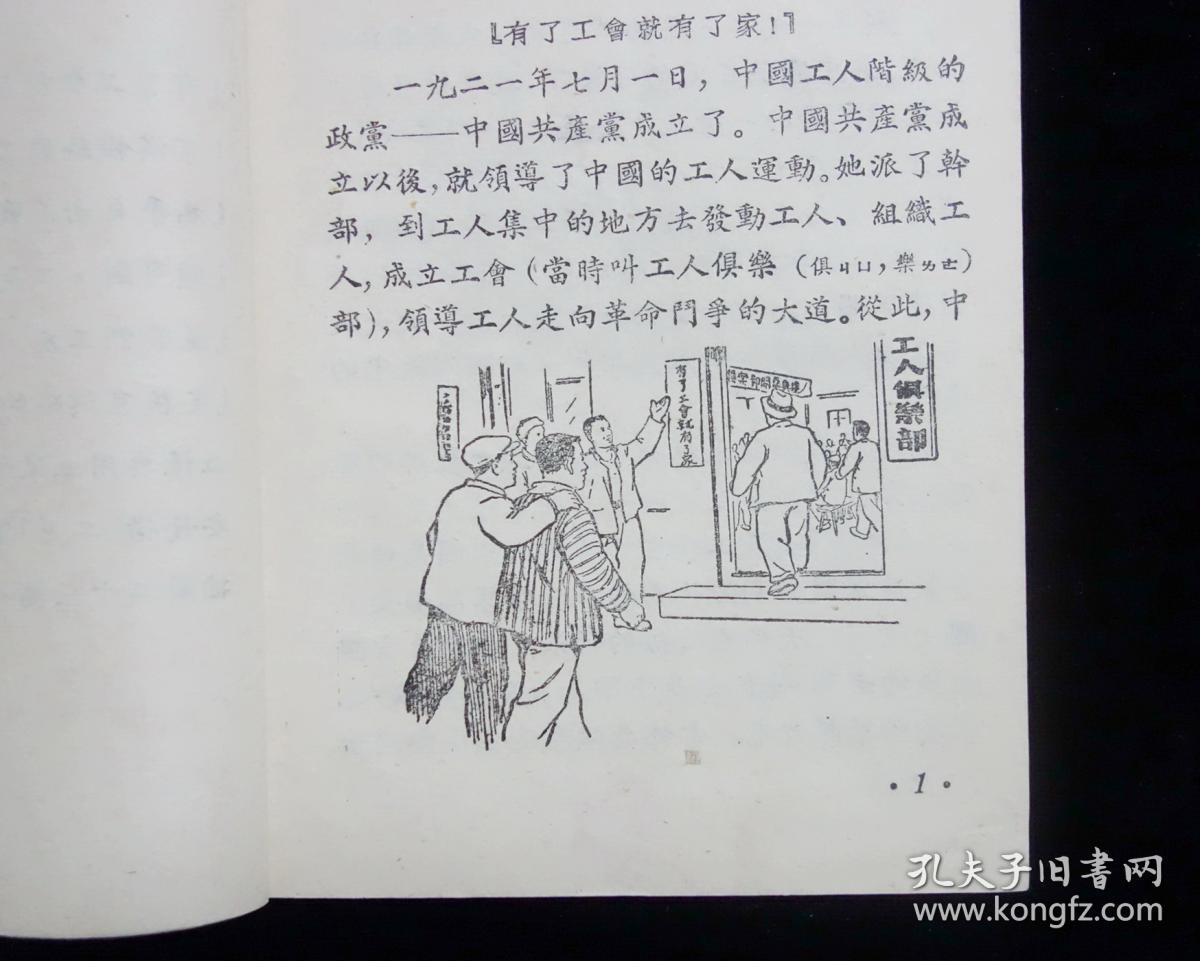 「有了工會就有了家！」
一九二一年七月一日，中國工人階級的
政黨——中國共產黨成立了。中國共產黨成
立以後，就領導了中國的工人運動。她派了幹
部，到工人集中的地方去發動工人、組織工
人，成立工會（當時叫工人俱樂（俱ㄐㄩ，樂ㄌㄜ）
部），領導工人走向革命鬥爭的大道。從此，中
有了工會就有了家
工人俱樂部
·1·
孔夫子旧书网
www.kongfz.com